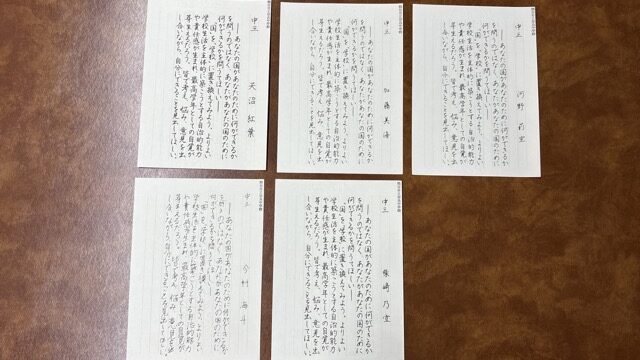 中三 天沼 紅葉
――あなたの国があなたのために何ができるか
を問うのではなく、あなたがあなたの国のために
何ができるかを問うてほしい――
「国」を「学校」に置き換えてみよう。よりよい
学校生活を主体的に築こうとする自治的能力
や責任感が生まれ、最高学年としての自覚が
芽生えるだろう。皆で考え、悩み、意見を出
し合いながら、自分にできることを見出してほしい。
中三 加藤 美海
――あなたの国があなたのために何ができるか
を問うのではなく、あなたがあなたの国のために
何ができるかを問うてほしい――
「国」を「学校」に置き換えてみよう。よりよい
学校生活を主体的に築こうとする自治的能力
や責任感が生まれ、最高学年としての自覚が
芽生えるだろう。皆で考え、悩み、意見を出
し合いながら、自分にできることを見出してほしい。
中三 河野
――あなたの国があなたのために何ができるか
を問うのではなく、あなたがあなたの国のために
何ができるかを問うてほしい――
「国」を「学校」に置き換えてみよう。よりよい
学校生活を主体的に築こうとする自治的能力
や責任感が生まれ、最高学年としての自覚が
芽生えるだろう。皆で考え、悩み、意見を出
し合いながら、自分にできることを見出してほしい。
中三 今村 海斗
――あなたの国があなたのために何ができるか
を問うのではなく、あなたがあなたの国のために
何ができるかを問うてほしい――
「国」を「学校」に置き換えてみよう。よりよい
学校生活を主体的に築こうとする自治的能力
や責任感が生まれ、最高学年としての自覚が
芽生えるだろう。皆で考え、悩み、意見を出
し合いながら、自分にできることを見出してほしい。
中三 篠崎 乃
――あなたの国があなたのために何ができるか
を問うのではなく、あなたがあなたの国のために
何ができるかを問うてほしい――
「国」を「学校」に置き換えてみよう。よりよい
学校生活を主体的に築こうとする自治的能力
や責任感が生まれ、最高学年としての自覚が
芽生えるだろう。皆で考え、悩み、意見を出
し合いながら、自分にできることを見出してほしい。